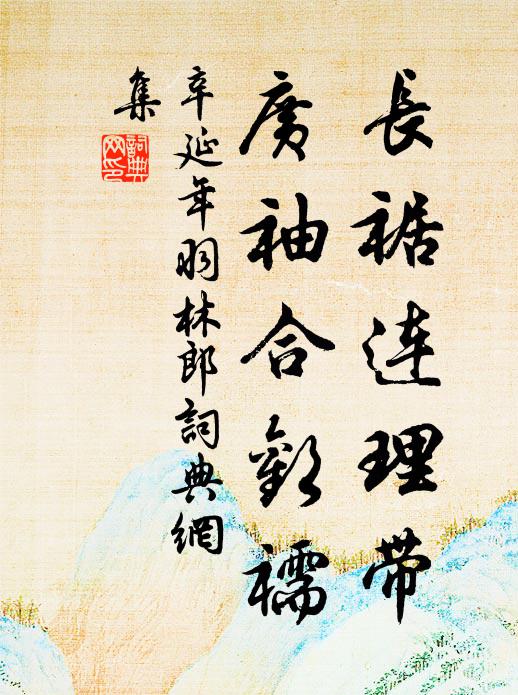 長裾連理帶
廣袖合歡襦
辛延年羽林郎詞典網
集
詞典網印